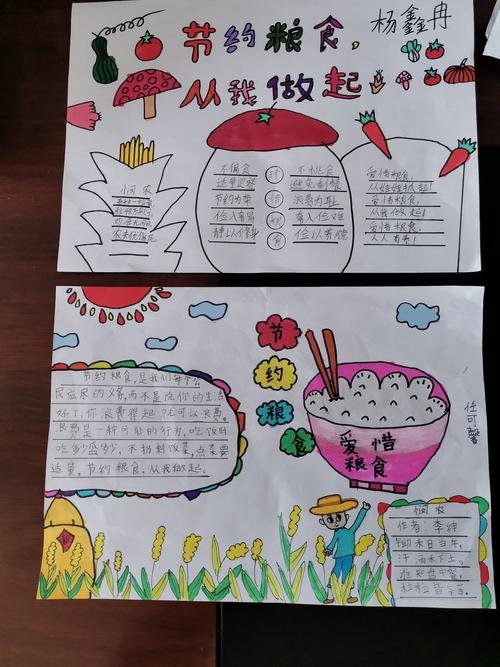 杨鑫冉
节约粮食，
从我做起
悯农
春种一粒粟
秋收万颗子
四海无闲田
农夫犹饿死
不偏食
适量定餐
节约为荣
俭入奢易
静以修身
珍
惜
粮
食
不挑食
避免剩餐
浪费为耻
奢入俭难
俭以养德
爱惜粮食，
从娃娃抓起！
节约粮食，
从我做起！
爱惜粮食，
人人有责！
节
约
粮
食
任可馨
节约粮食，是我们每个公
民应尽的义务，而不是说你的生活
好了，你浪费得起，才可以浪费。
浪费是一种可耻的行为，吃饭时
吃多少盛多少，不扔剩饭菜，点菜要
适量。节约粮食，从我做起。
爱惜
粮食
悯农
作者：李绅
锄禾日当午，
汗滴禾下土。
谁知盘中餐，
粒粒皆辛苦。